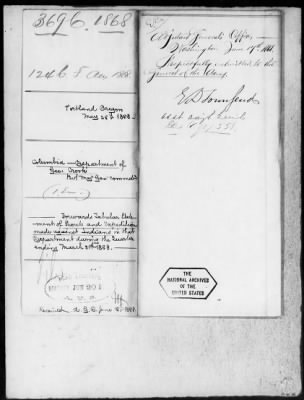 3696. 1868
1246 F 1868.
Portland Oregon
May 28th 1868.
Columbia - Department of
Geo. Crook
Bvt Maj Gen commdg
Forwards Tabular State-
ment of Scouts and Expeditions
made against Indians in that
Department during the Quarter
ending March 31st 1868.
Received A.G.O. June 1868
Adjutant General's Office
Washington June 1868.
Respectfully submitted to the
General of the Army.
E D Townsend
Asst Adjt Genl
THE
NATIONAL ARCHIVES
OF THE
UNITED STATES